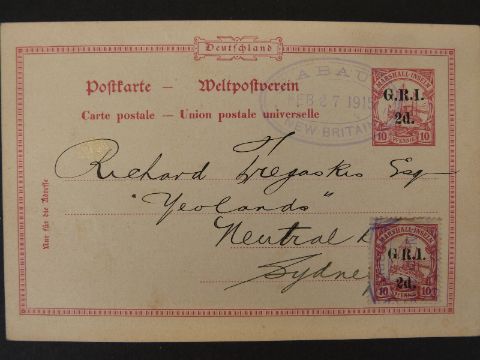 Deutschland
Postkarte — Weltpostverein
Carte postale — Union postale universelle
RABAUL
FEB 27 1915
NEW BRITAIN
MARSHALL-INSELN
G.R.I.
2d.
10 PFENNIG 10
Richard Tregaskis Esq
"Yeolands"
Neutral
Sydney
Nur für die Adresse
MARSHALL-INSELN
G.R.I.
2d.
10 PFENNIG 10